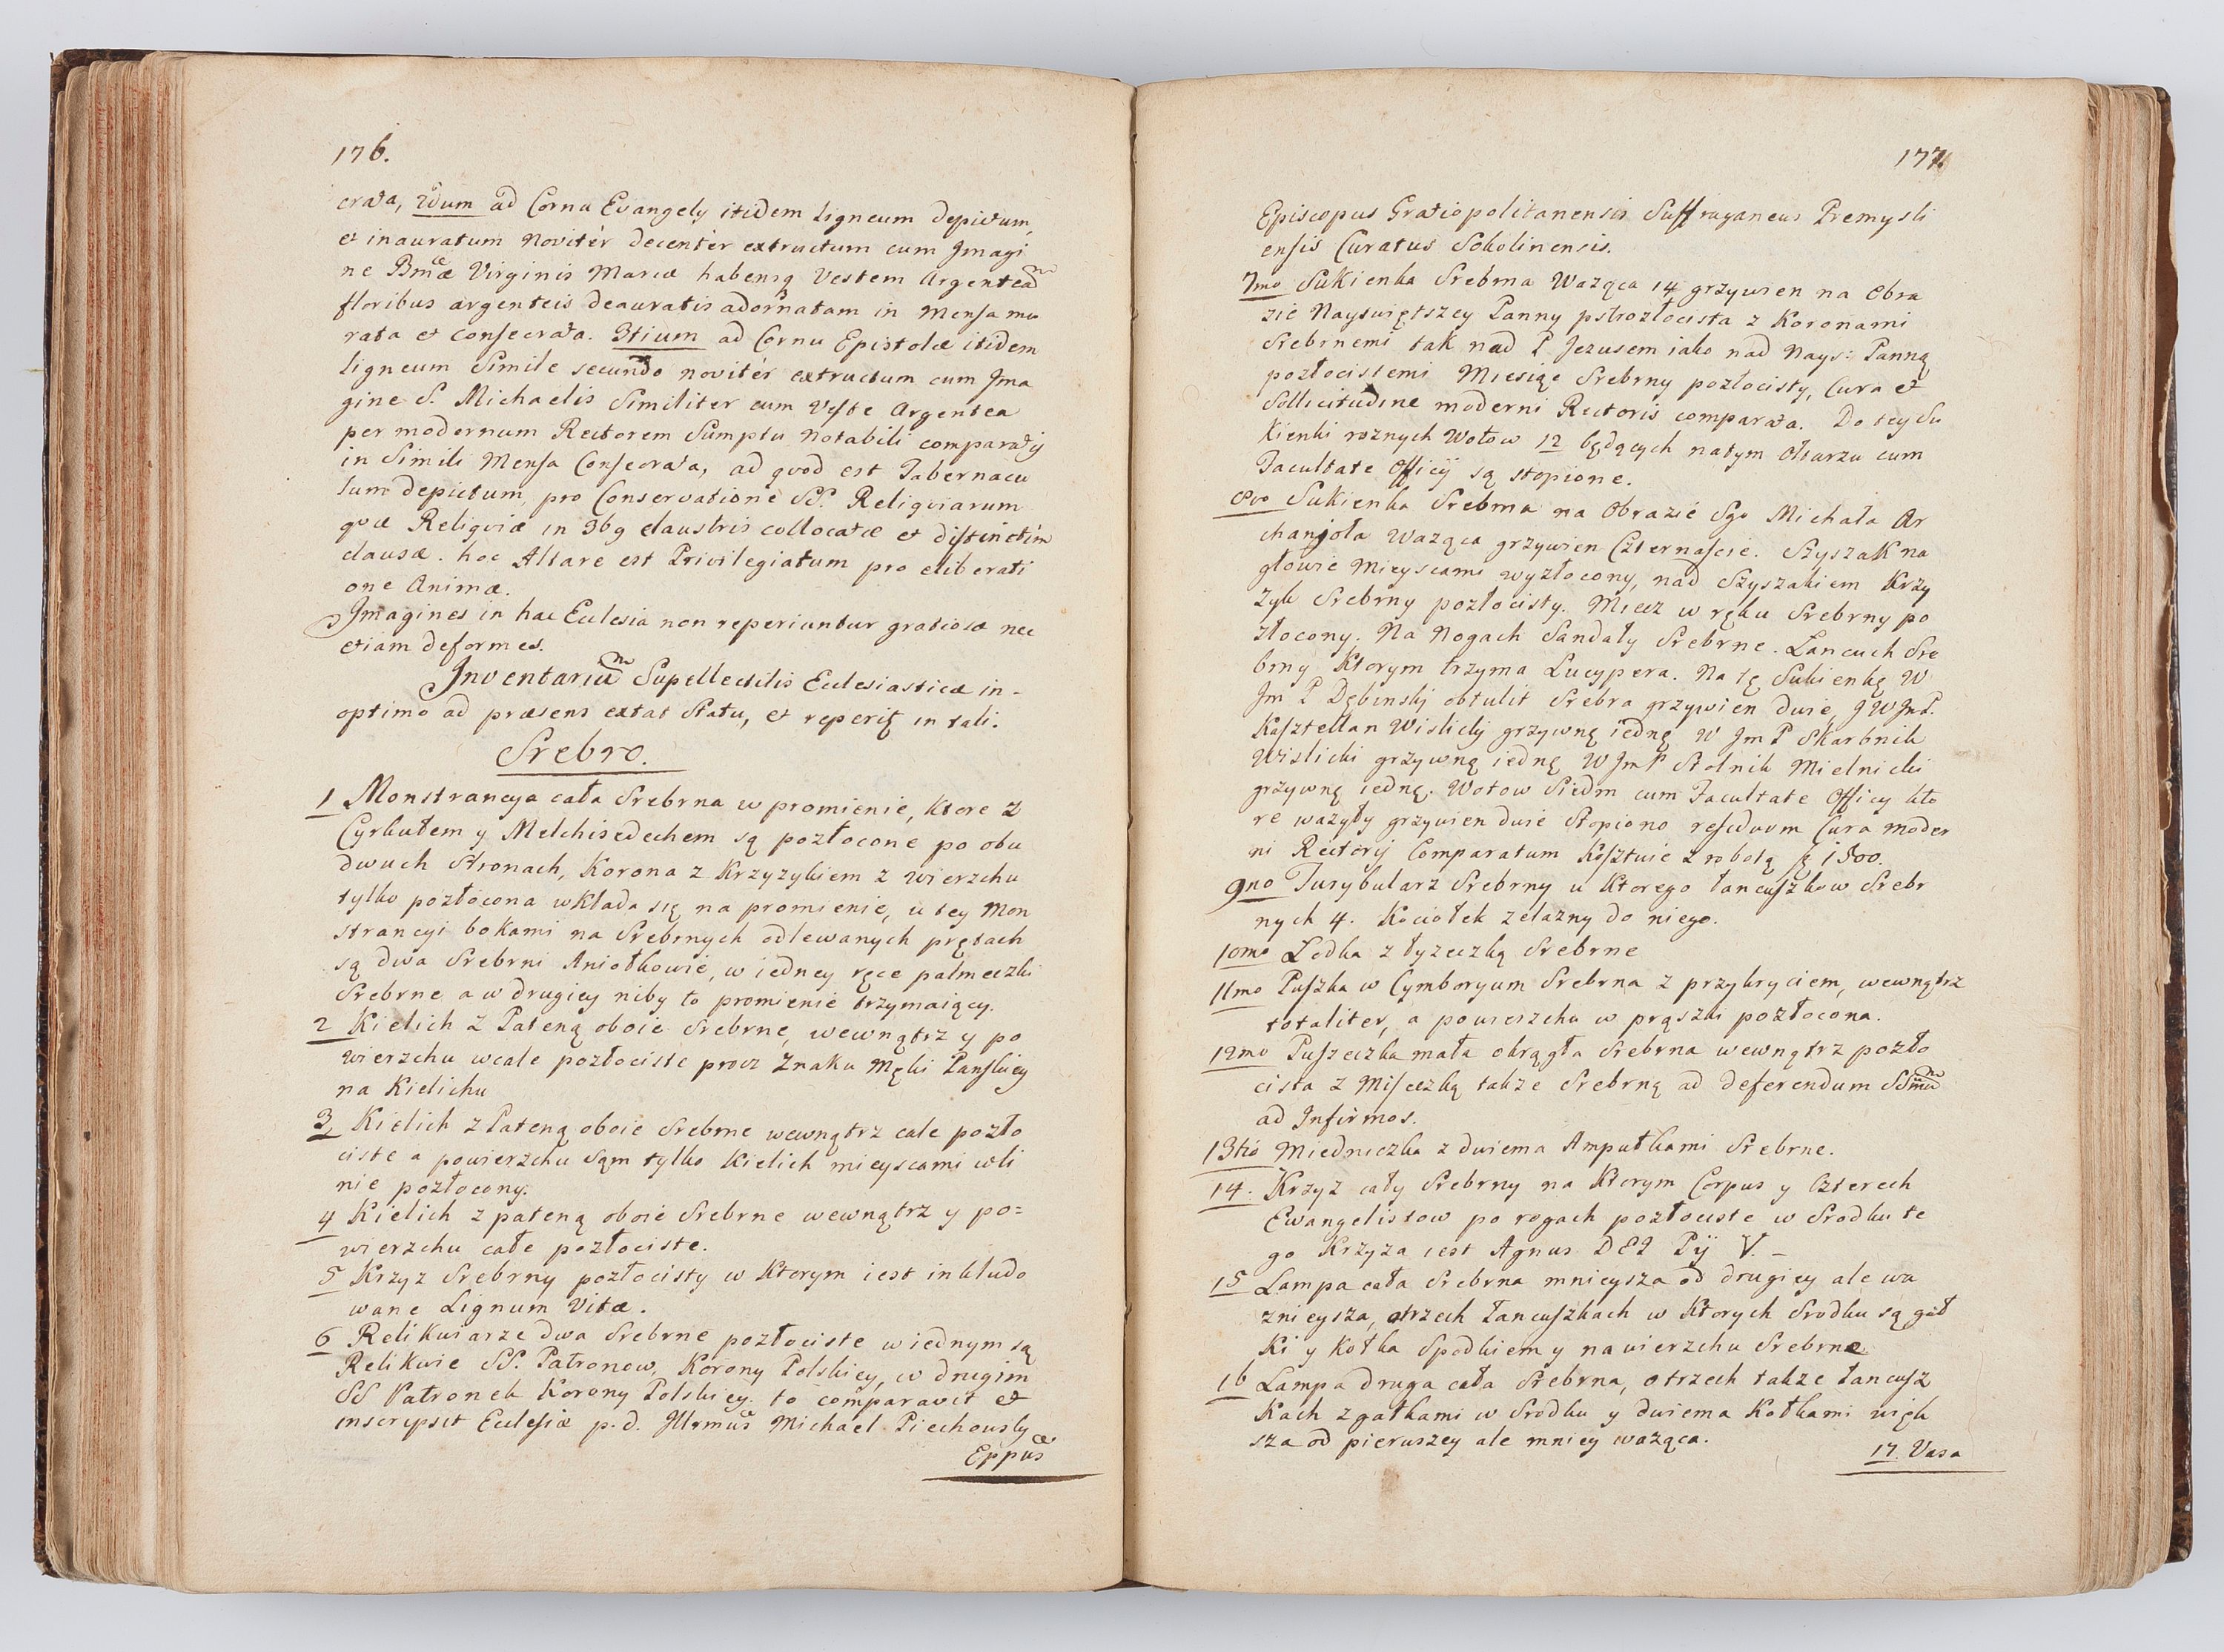 176.
crata, 2dum ad Cornu Evangely itidem Ligneum depictum,
et inauratum Noviter decenter extructum cum Jmagi
ne Bmæ Virginis Mariæ habens Vestem Argenteã
floribus argenteis deauratis adornatam in Mensa mu
rata et consecrata. 3tium ad Cornu Epistolæ itidem
ligneum Simile secundo noviter extructum cum Jma
gine S. Michaelis Similiter cum Veste Argentea
per modernum Rectorem Sumptu Notabili comparaty
in Simili Mensa Consecrata, ad qvod est Tabernacu
lum depictum pro Conservatione SS. Reliqviarum
qvæ Reliqviæ in claustris collocatæ et distinctim
clausæ. hoc Altare est Privilegiatum pro eliberati
one Animæ.
Jmagines in hac Ecclesia non reperiuntur gratiosæ nec
etiam deformes.
Jnventariũ Supellectilis Ecclesiasticæ in-
optimo ad præsens extat Statu, et in tali.
Srebro.
1 Monstrancya cała Srebrna w promienie, które z
Cyrkułem y Melchisedechem są pozłocone po obu
dwuch Stronach, Korona z Krzyzykiem z wierzchu
tylko pozłocona wkłada się na promienie, u tey Mon
strancyi bokami na Srebrnych odlewanych prętach
są dwa Srebrni Aniołkowie, w iedney ręce palmeczki
Srebrne a w drugiey niby to promienie trzymaiący.
2 Kielich z Pateną oboie Srebrne, wewnątrz y po
wierzchu wcale pozłociste procz Znaku Męki Panskiey
na Kielichu
3 Kielich z Pateną oboie Srebrne wewnątrz cale pozło
ciste a powierzchu sąm tylko Kielich mieyscami wli
nie pozłocony.
4 Kielich z pateną oboie Srebrne wewnątrz y po=
wierzchu całe pozłociste.
5 Krzyz Srebrny pozłocisty w Ktorym iest inkludo
wane Lignum Vitæ.
6 Relikwiarze dwa Srebrne pozłociste w iednym są
Relikwie SS. Patronow, Korony Polskiey, w drugim
SS Patronek Korony Polskiey. to comparavit et
inscripsit Ecclesiæ p.d. Jllrmus Michael Piechowsky
Eppus
177.
Episcopus Gratiopolitanensis Suffraganeus Premysli
ensis Curatus Sokolinensis.
7mo Sukienka Srebrna Waząca 14 grzywien na Obra
zie Nayswiętszey Panny pstrozłocista z Koronami
Srebrnemi tak nad P Jezusem iako nad Nays: Panną
pozłocistemi Miesiąc Srebrny pozłocisty, Cura et
Sollicitudine moderni Rectoris comparata. Do tey Su
kienki roznych Wotow 12 będących na tym Ołtarzu cum
Facultate Officij są stopione.
8vo Sukienka Srebrna na Obrazie Sgo Michała Ar
chanjoła Waząca grzywien Czternascie. Szyszak na
głowie Mieyscami wyzłocony, nad Szyszakiem Krzy
zyk Srebrny pozłocisty. Miecz w ręku Srebrny po
złocony. Na Nogach Sandały Srebrne. Lancuch Sre
brny Ktorym trzyma Lucypera. Na tę Sukienkę W
Jm P Dębinskj obtulit Srebra grzywien dwie, J W Jm P.
Kasztellan Wislicky grzywnę iednę W Jm P Skarbnik
Wislicki grzywnę iednę W Jm P Stolnik Mielnicki
grzywnę iednę. Wotow Siedm cum Facultate Officy kto
re wazyły grzywien dwie Stopiono residuum Cura moder
ni Rectorij Comparatum Kosztuie z robotą 1500.
9no Turybularz Srebrny u Ktorego łancuszkow Srebr
nych 4. Kociołek zelazny do niego.
10mo Lodka z łyzeczką Srebrne
11mo Puszka w Cymboryum Srebrna z przykryciem, wewnątrz
totaliter, a powierzchu w prąszki pozłocona.
12mo Puszeczka mała okrągła Srebrna wewnątrz pozło
cista z Miseczką takze Srebrną ad deferendum SSmũ
ad Infirmos.
13tio Miedniczka z dwiema Ampułkami Srebrne.
14. Krzyz cały Srebrny na Ktorym Corpus y Czterech
Ewangelistow po rogach pozłociste w Srodku te
go Krzyza iest Agnus DEI Pij V. –
15 Lampa cała Srebrna mnieysza od drugiey ale wa
znieysza, otrzech Łancuszkach w Ktorych Srodku są gał
Ki y Kołka Spodkiem y na wierzchu Srebrne
16 Lampa druga cała Srebrna, otrzech takze łancusz
Kach z gałkami w Srodku y dwiema Kołkami więk
sza od pierwszey ale mniey waząca.
17. Vasa